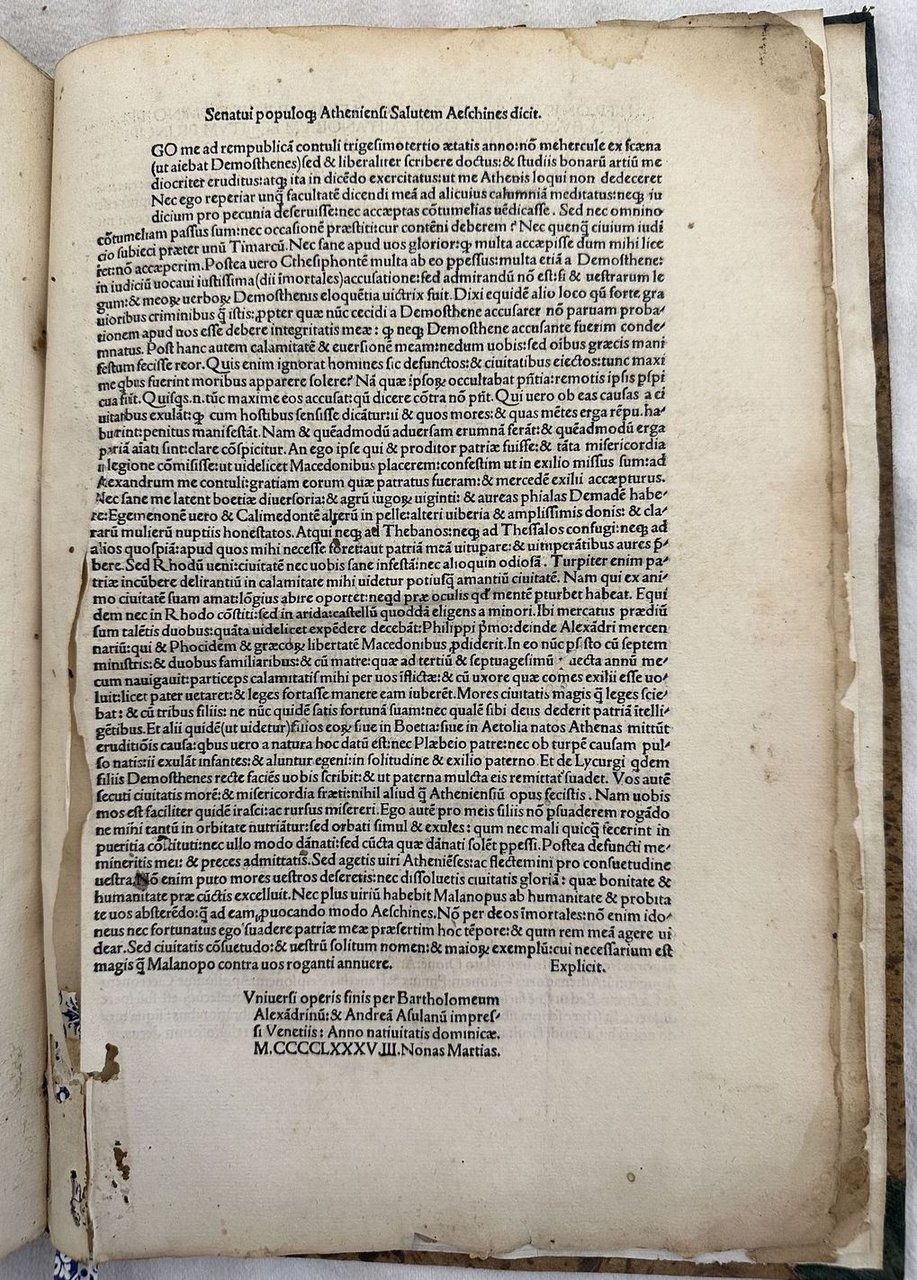 Senatui populoq̃ Atheniensi Salutem Aeschines dicit.
GO me ad rempublicã contuli trigesimotertio ætatis anno:nõ mehercule ex scæna
(ut aiebat Demosthenes)sed & liberaliter scribere doctus:& studiis bonarũ artiũ me
diocriter eruditus:atq̃ ita in dicẽdo exercitatus:ut me Athenis loqui non dedeceret
Nec ego reperiar unq̃ facultatẽ dicendi meã ad alicuius calumniã meditatus:neq̃ iu
dicium pro pecunia deseruisse:nec accæptas cõtumelias uẽdicasse. Sed nec omnino
cõtumeliam passus sum:nec occasionẽ præstiti:cur contẽni deberem? Nec quenq̃ ciuium iudi
cio subieci præter unũ Timarcũ. Nec sane apud uos glorior:q̃ multa accæpisse dum mihi lice
ret:nõ accæperim. Postea uero Cthesiphontẽ multa ab eo ppessus:multa etiã a Demosthene:
in iudiciũ uocaui iustissima(dii ĩmortales)accusatione:sed admirandũ nõ est:si & uestrarum le
gum:& meoꝝ uerboꝝ Demosthenis eloquẽtia uictrix fuit. Dixi equidẽ alio loco qũ forte gra
uioribus criminibus q̃ istis:ꝓpter quæ nũc cecidi a Demosthene accusarer nõ paruam proba/
tionem apud uos esse debere integritatis meæ: q̃ neq̃ Demosthene accusante fuerim conde/
mnatus. Post hanc autem calamitatẽ & euersionẽ meam:nedum uobis:sed oĩbus græcis mani
festum fecisse reor. Quis enim ignorat homines sic defunctos:& ciuitatibus eiectos:tunc maxi
me qbus fuerint moribus apparere solere? Nã quæ ipsoꝝ occultabat pñtia:remotis ipsis pspi
cua fiũt. Quisqs.n.tũc maxime eos accusat:qũ dicere cõtra nõ pñt. Qui uero ob eas causas a ci
uitatibus exulãt:q̃ cum hostibus sensisse dicãtur:ii & quos mores:& quas mẽtes erga rẽpu.ha/
buerint:penitus manifestãt. Nam & quẽadmodũ aduersam erumnã ferãt:& quẽadmodũ erga
patriã aĩati sint:clare cõspicitur. An ego ipse qui & proditor patriæ fuisse:& tãta misericordia
legione cõmisisse:ut uidelicet Macedonibus placerem:confestim ut in exilio missus sum:ad
Alexandrum me contuli:gratiam eorum quæ patratus fueram:& mercedẽ exilii accæpturus.
Nec sane me latent boetiæ diuersoria:& agrũ iugoꝝ uiginti: & aureas phialas Demadẽ habe/
re:Egemonenẽ uero & Calimedontẽ alterũ in pelle:alteri uiberia & amplissimis donis: & cla/
rarũ mulierũ nuptiis honẽstatos. Atqui neq̃ ad Thebanos:neq̃ ad Thessalos confugi:neq̃ ad
alios quospiã:apud quos mihi necesse foret:aut patriã meã uitupare:& uitupẽratibus aures p̃/
bere. Sed Rhodũ ueni:ciuitatẽ nec uobis sane infestã:nec alioquin odiosã. Turpiter enim pa/
triæ incũbere delirantiũ in calamitate mihi uidetur potiusq̃ amantiũ ciuitatẽ. Nam qui ex ani/
mo ciuitatẽ suam amat:lõgius abire oportet:neqd præ oculis qd' mentẽ pturbet habeat. Equi
dem nec in Rhodo cõstiti:sed in arida:castellũ quoddã eligens a minori. Ibi mercatus prædiũ
sum talẽtis duobus:quãta uidelicet expẽdere decebãt:Philippi p̃mo:deinde Alexãdri mercen
nariũ:qui & Phocidem & græcoꝝ libertatẽ Macedonibus ꝓdiderit. In eo nũc psisto cũ septem
ministris:& duobus familiaribus:& cũ matre:quæ ad tertiũ & septuagesimũ uecta annũ me/
cum nauigauit:particeps calamitatis mihi per uos ĩflictæ:& cũ uxore quæ comes exilii esse uo/
luit:licet pater uetaret:& leges fortasse manere eam iuberẽt. Mores ciuitatis magis q̃ leges scie/
bat: & cũ tribus filiis: ne nũc quidẽ satis fortunã suam:nec qualẽ sibi deus dederit patriã ĩtelli/
gẽtibus. Et alii quidẽ(ut uidetur)filios eoꝝ siue in Boetia:siue in Aetolia natos Athenas mittũt
eruditiõis causa:qbus uero a natura hoc datũ est:nec Plæbeio patre:nec ob turpẽ causam pul/
so natis:ii exulãt infantes:& aluntur egeni:in solitudine & exilio paterno. Et de Lycurgi qdem
filiis Demosthenes recte faciẽs uobis scribit:& ut paterna mulcta eis remittat suadet. Vos autẽ
secuti ciuitatis morẽ:& misericordia fræti:nihil aliud q̃ Atheniensiũ opus fecistis. Nam uobis
mos est faciliter quidẽ irasci:ac rursus misereri. Ego autẽ pro meis filiis nõ psuaderem rogãdo
ne mihi tantũ in orbitate nutriãtur:sed orbati simul & exules: qum nec mali quicq̃ fecerint in
pueritia cõstituti:nec ullo modo dãnati:sed cũcta quæ dãnati solẽt ppessi. Postea defuncti me/
mineritis mei: & preces admittatis. Sed agetis uiri Atheniẽses:ac flectemini pro consuetudine
uestra. Nõ enim puto mores uestros deseretis:nec dissoluetis ciuitatis gloriã: quæ bonitate &
humanitate præ cũctis excelluit. Nec plus uiriũ habebit Malanopus ab humanitate & probita
te uos absterẽdo:q̃ ad eam ꝓuocando modo Aeschines. Nõ per deos ĩmortales:nõ enim ido/
neus nec fortunatus ego suadere patriæ meæ præsertim hoc tẽpore:& qum rem meã agere ui
dear. Sed ciuitatis cõsuetudo:& uestrũ solitum nomen:& maioꝝ exemplũ:cui necessarium est
magis q̃ Malanopo contra uos roganti annuere. Explicit.
Vniuersi operis finis per Bartholomeum
Alexãdrinũ:& Andreã Asulanũ impres/
si Venetiis: Anno natiuitatis dominicæ.
M.CCCCLXXXVIII.Nonas Martias.